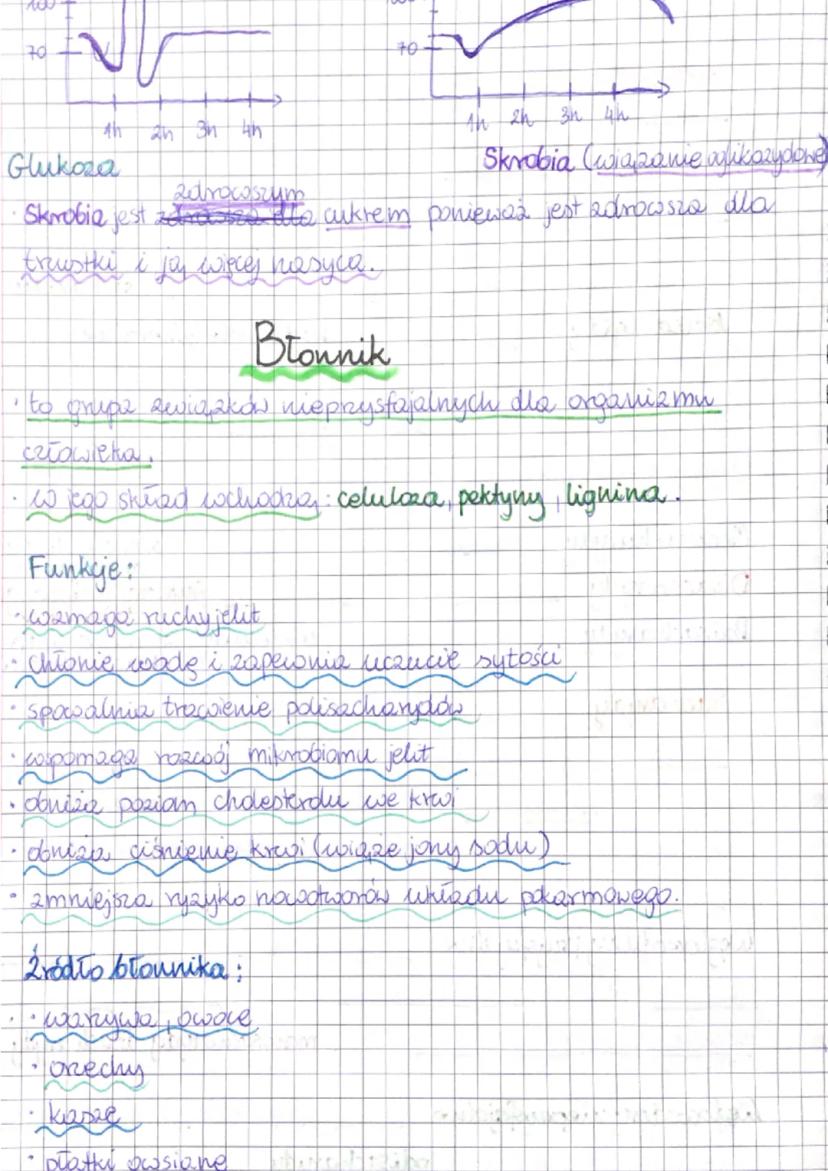 100
100
70
70
1h 2h 3h 4h
1h 2h 3h 4h
Glukoza
Skrobia (wiązanie αglikozydowe)
zdrowszym
· Skrobia jest zdrowsza dla cukrem ponieważ jest zdrowsza dla
trzustki i ją więcej nasyca.
Błonnik
· to grupa związków nieprzysfajalnych dla organizmu
człowieka.
· w jego skład wchodzą: celuloza, pektyny, lignina.
Funkcje:
· wzmaga ruchy jelit
· chłonie wodę i zapewnia uczucie sytości
· spowalnia trawienie polisacharydów
· wspomaga rozwój mikrobiomu jelit
· obniża poziom cholesterolu we krwi
· obniża ciśnienie krwi (wiąże jony sodu)
· zmniejsza ryzyko nowotworów układu pokarmowego.
Źródło błonnika:
· warzywa, owoce
· orzechy
· kasze
· płatki owsiane